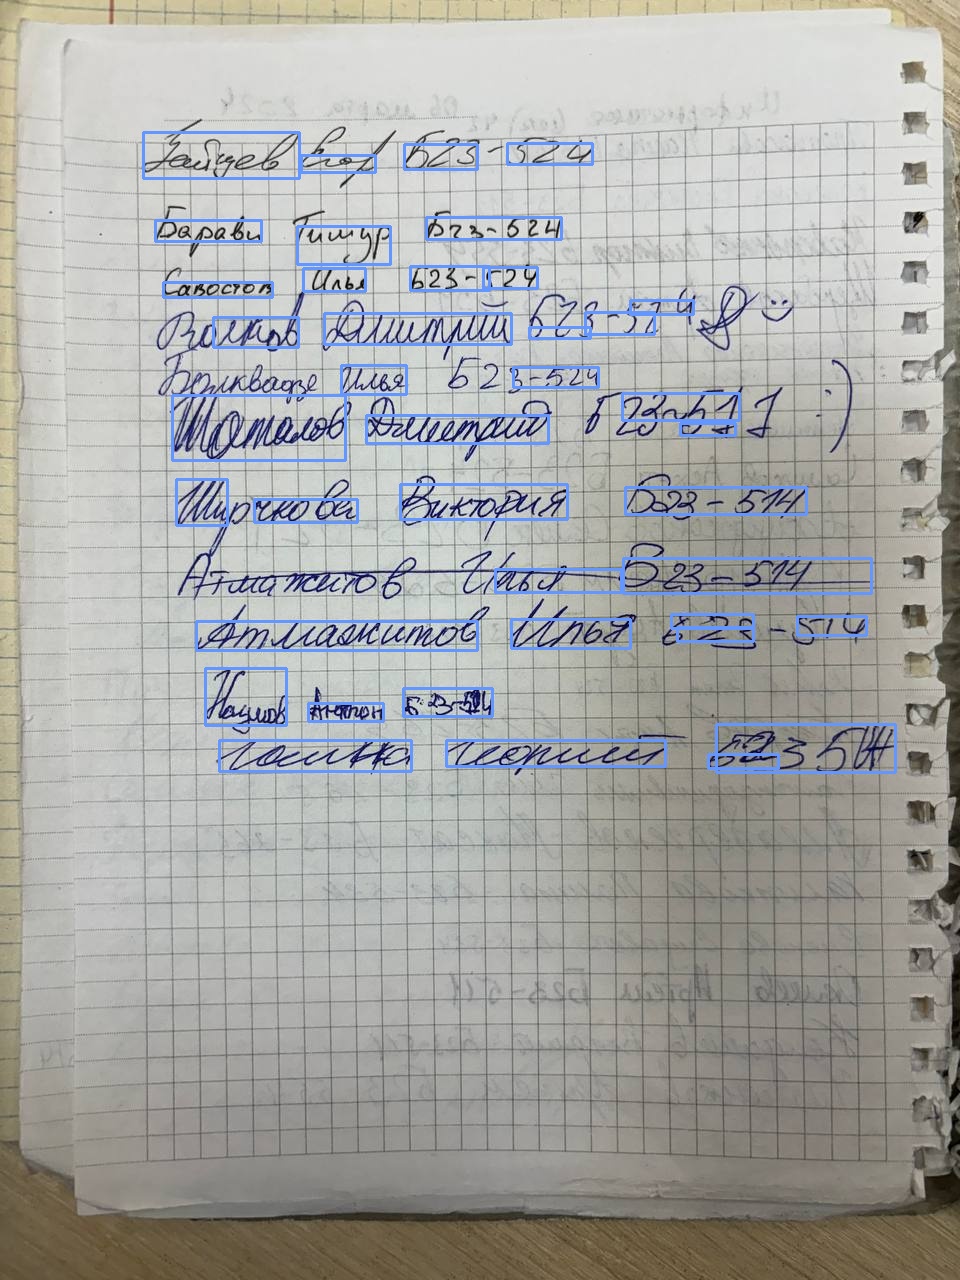 Зайцев Егор Б23-524
Барави Тимур Б23-524
Савостов Илья Б23-524
Волков Дмитрий Б23-524
Болквадзе Илья Б23-524
Шаталов Дмитрий Б23-511 :)
Шурчкова Виктория Б23-514
Атмажитов Илья Б23-514
Атмажитов Илья Б23-514
Наумов Антон Б23-514
Георгий Б23